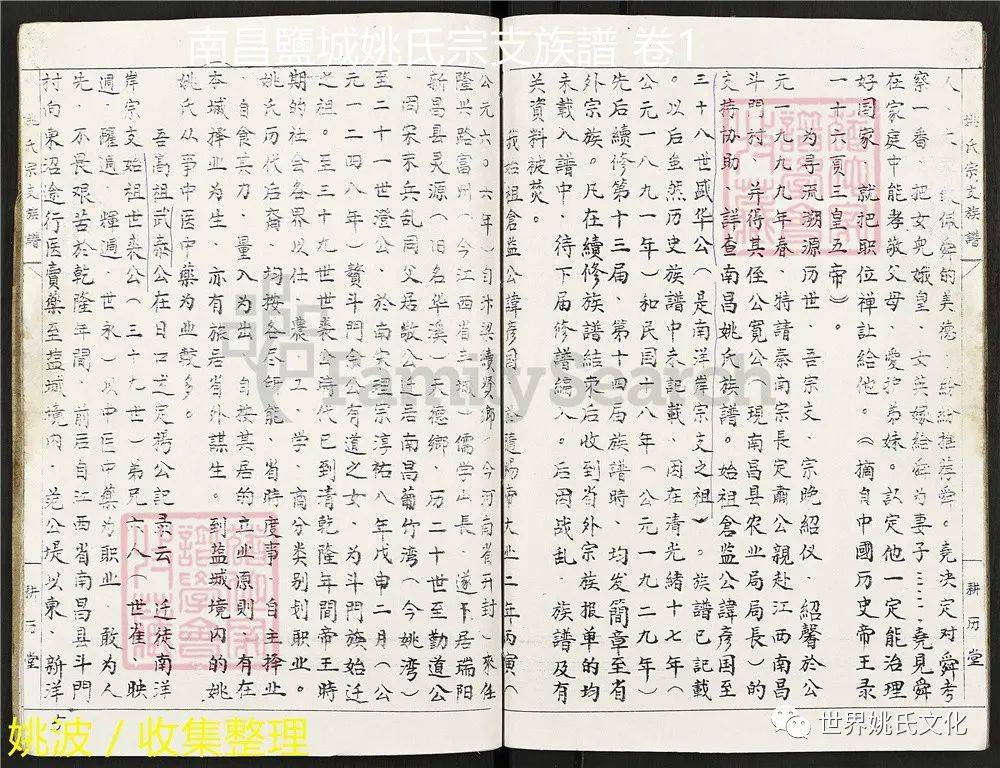 南昌鹽城姚氏宗支族譜 卷1
姚氏宗支族譜
耕历堂
人 佩舜的美德 纷纷推荐舜。尧决定对舜考
察一番、把女兒娥皇 女英嫁给舜为妻子……尧見舜
在家庭中能孝敬父母 爱护弟妹。認定他一定能治理
好国家 就把职位禅让给他。（摘自中國历史帝王录
一十六頁三皇五帝）
为寻流溯源历世、吾宗支、宗晚紹仪、紹馨於公
元一九九九年春 特請泰南宗長定肅公親赴江西南昌
斗門村、并得其侄公寬公（現南昌县农业局局長）的
支持协助、詳查南昌姚氏族譜。始祖倉监公諱彦国至
三十八世盛华公（是南洋岸宗支之祖）。族譜已記載
以后虽然历史族譜中未記載、因在清光緒十七年（
公元一八九一年）和民国十八年（公元一九二九年）
先后續修第十三届、第十四届族譜時 均发簡章至省
外宗族。凡在續修族譜结束后收到省外宗族报单的均
未載入譜中 待下届修譜編入。后因战乱 族譜及有
关資料被焚。
我始祖倉监公諱彦国 於隨煬帝大业二年丙寅（
公元六〇六年）自汴梁 （今河南省开封）來任
隆兴路富州（今江西省 城）儒学山長、遂卜居瑞阳
新昌县灵源（旧名华溪）天德鄉、历二十世至勤道公
因宋末兵乱同父居敬公迁居南昌葡竹湾（今姚湾）
至二十一世澄公、於南宋理宗淳祐八年戊申二月（公
元一二四八年）贅斗門 公有道之女、为斗門族始迁
之祖。至三十九世世裘公時代已到青乾隆年間帝王時
期的社会各界以仕、農、工、学、商分类别划职业。
姚氏历代后裔 均按各尽所能、省時度事、自主择业
自食其力、量入为出、自按其居的立业原則、有在
本城择业为生、亦有旅居省外謀生。到盐城境內的
姚氏从事中医中藥为业較多。
吾高祖武泰公在日口述 公記录云 迁徒南洋
岸宗支始祖世裘公（三十九世）弟兄六人（世雀、映
週、躍週、輝週、世永）以中医中藥为职业、敢为人
先、不畏艰苦於乾隆年間、前居自江西省南昌县斗門
村向東沿途行医賣藥至盐城境內、范公堤以東、新洋
姚氏宗支族譜
耕历堂
FamilySearch
世界姚氏文化
姚波／收集整理